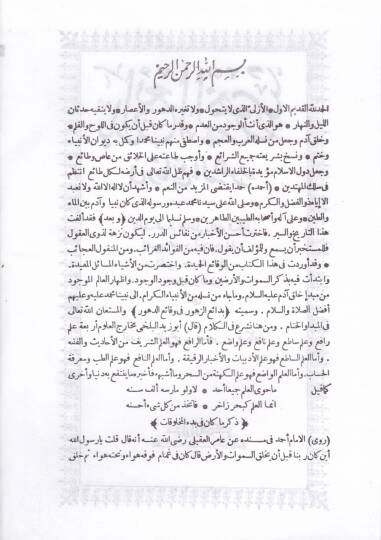 بسم الله الرحمن الرحيم
الحمد لله القديم الاول * الأزلى الذى لا يتحول * ولا تغيره الدهور والأعصار * ولا يفنيه حدثان
الليل والنهار * هو الذى أنشأ الوجود من العدم * وقدر ما كان قبل أن يكون فى اللوح والقلم *
وخلق آدم وجعل من نسله العرب والعجم * واصطفى منهم نبينا محمدا وكل به ديوان الأنبياء
وختم * ونسخ بشريعته جميع الشرائع * وأوجب طاعته على الخلائق من عاص وطائع *
وجعل دول الاسلام مؤيدة بالخلفاء الراشدين * فهم ظل الله تعالى فى أرضه لكل طائع انتظم
فى سلك المهتدين * (أحمده) حمدا يقتضى المزيد من النعم * وأشهد أن لا اله الا الله ولا نعبد
الا اياه ذو الفضل والكرم * وصلى الله على سيدنا محمد عبده ورسوله الذى كان نبيا وآدم بين الماء
والطين * وعلى آله وأصحابه الطيبين الطاهرين * وسلم تسليما الى يوم الدين (وبعد) فقد ألفت
هذا التاريخ والسير . فاخترت أحسن الأخبار من نفائس الدرر . ليكون نزهة لذوى العقول
فالمستخبر أن يسمع وللمؤلف أن يقول . فان فيه من الفوائد الغرائب . ومن المنقول العجائب
* وقد أوردت فى هذا الكتاب من الوقائع الجيدة . واختصرت من الأشياء المسائل المفيدة .
وابتدأت فيه بذكر السموات والأرضين وما كان قبل وجود الوجود . واظهار العالم الموجود
من مبدا خلق آدم عليه السلام . وما جاء من نسله من الأنبياء الكرام . الى نبينا محمد عليه وعليهم
أفضل الصلاة والسلام . وسميته (بدائع الزهور فى وقائع الدهور) والمستعان الله تعالى
فى المبدا والختام * ومن هنا نشرع فى الكلام (قال) أبو زيد البلخى مخارج العلوم أربعة علم
رافع وعلم ساطع وعلم نافع وعلم واضع . فأما الرافع فهو العلم الشريف من الأحاديث والفقه
. وأما العلم الساطع فهو علم الأدبيات والأخبار الرقيقة . وأما العلم النافع فهو علم الطب ومعرفة
الحساب . وأما العلم الواضع فهو علم الكهنة من السحر وما أشبهه فأخبر صاحبه ينتفع به دنيا وأخرى
كما قيل ما حوى العلم جميعا أحد * لا ولو مارسه ألف سنه
انما العلم كبحر زاخر * فاتخذ من كل شىء أحسنه
(ذكر ما كان فى بدء المخلوقات)
(روى) الامام أحمد فى مسنده عن عامر العقيلى رضى الله عنه أنه قال قلت يا رسول الله
أين كان ربنا قبل أن يخلق السموات والأرض قال كان فى غمام فوقه هواء وتحته هواء ثم خلق